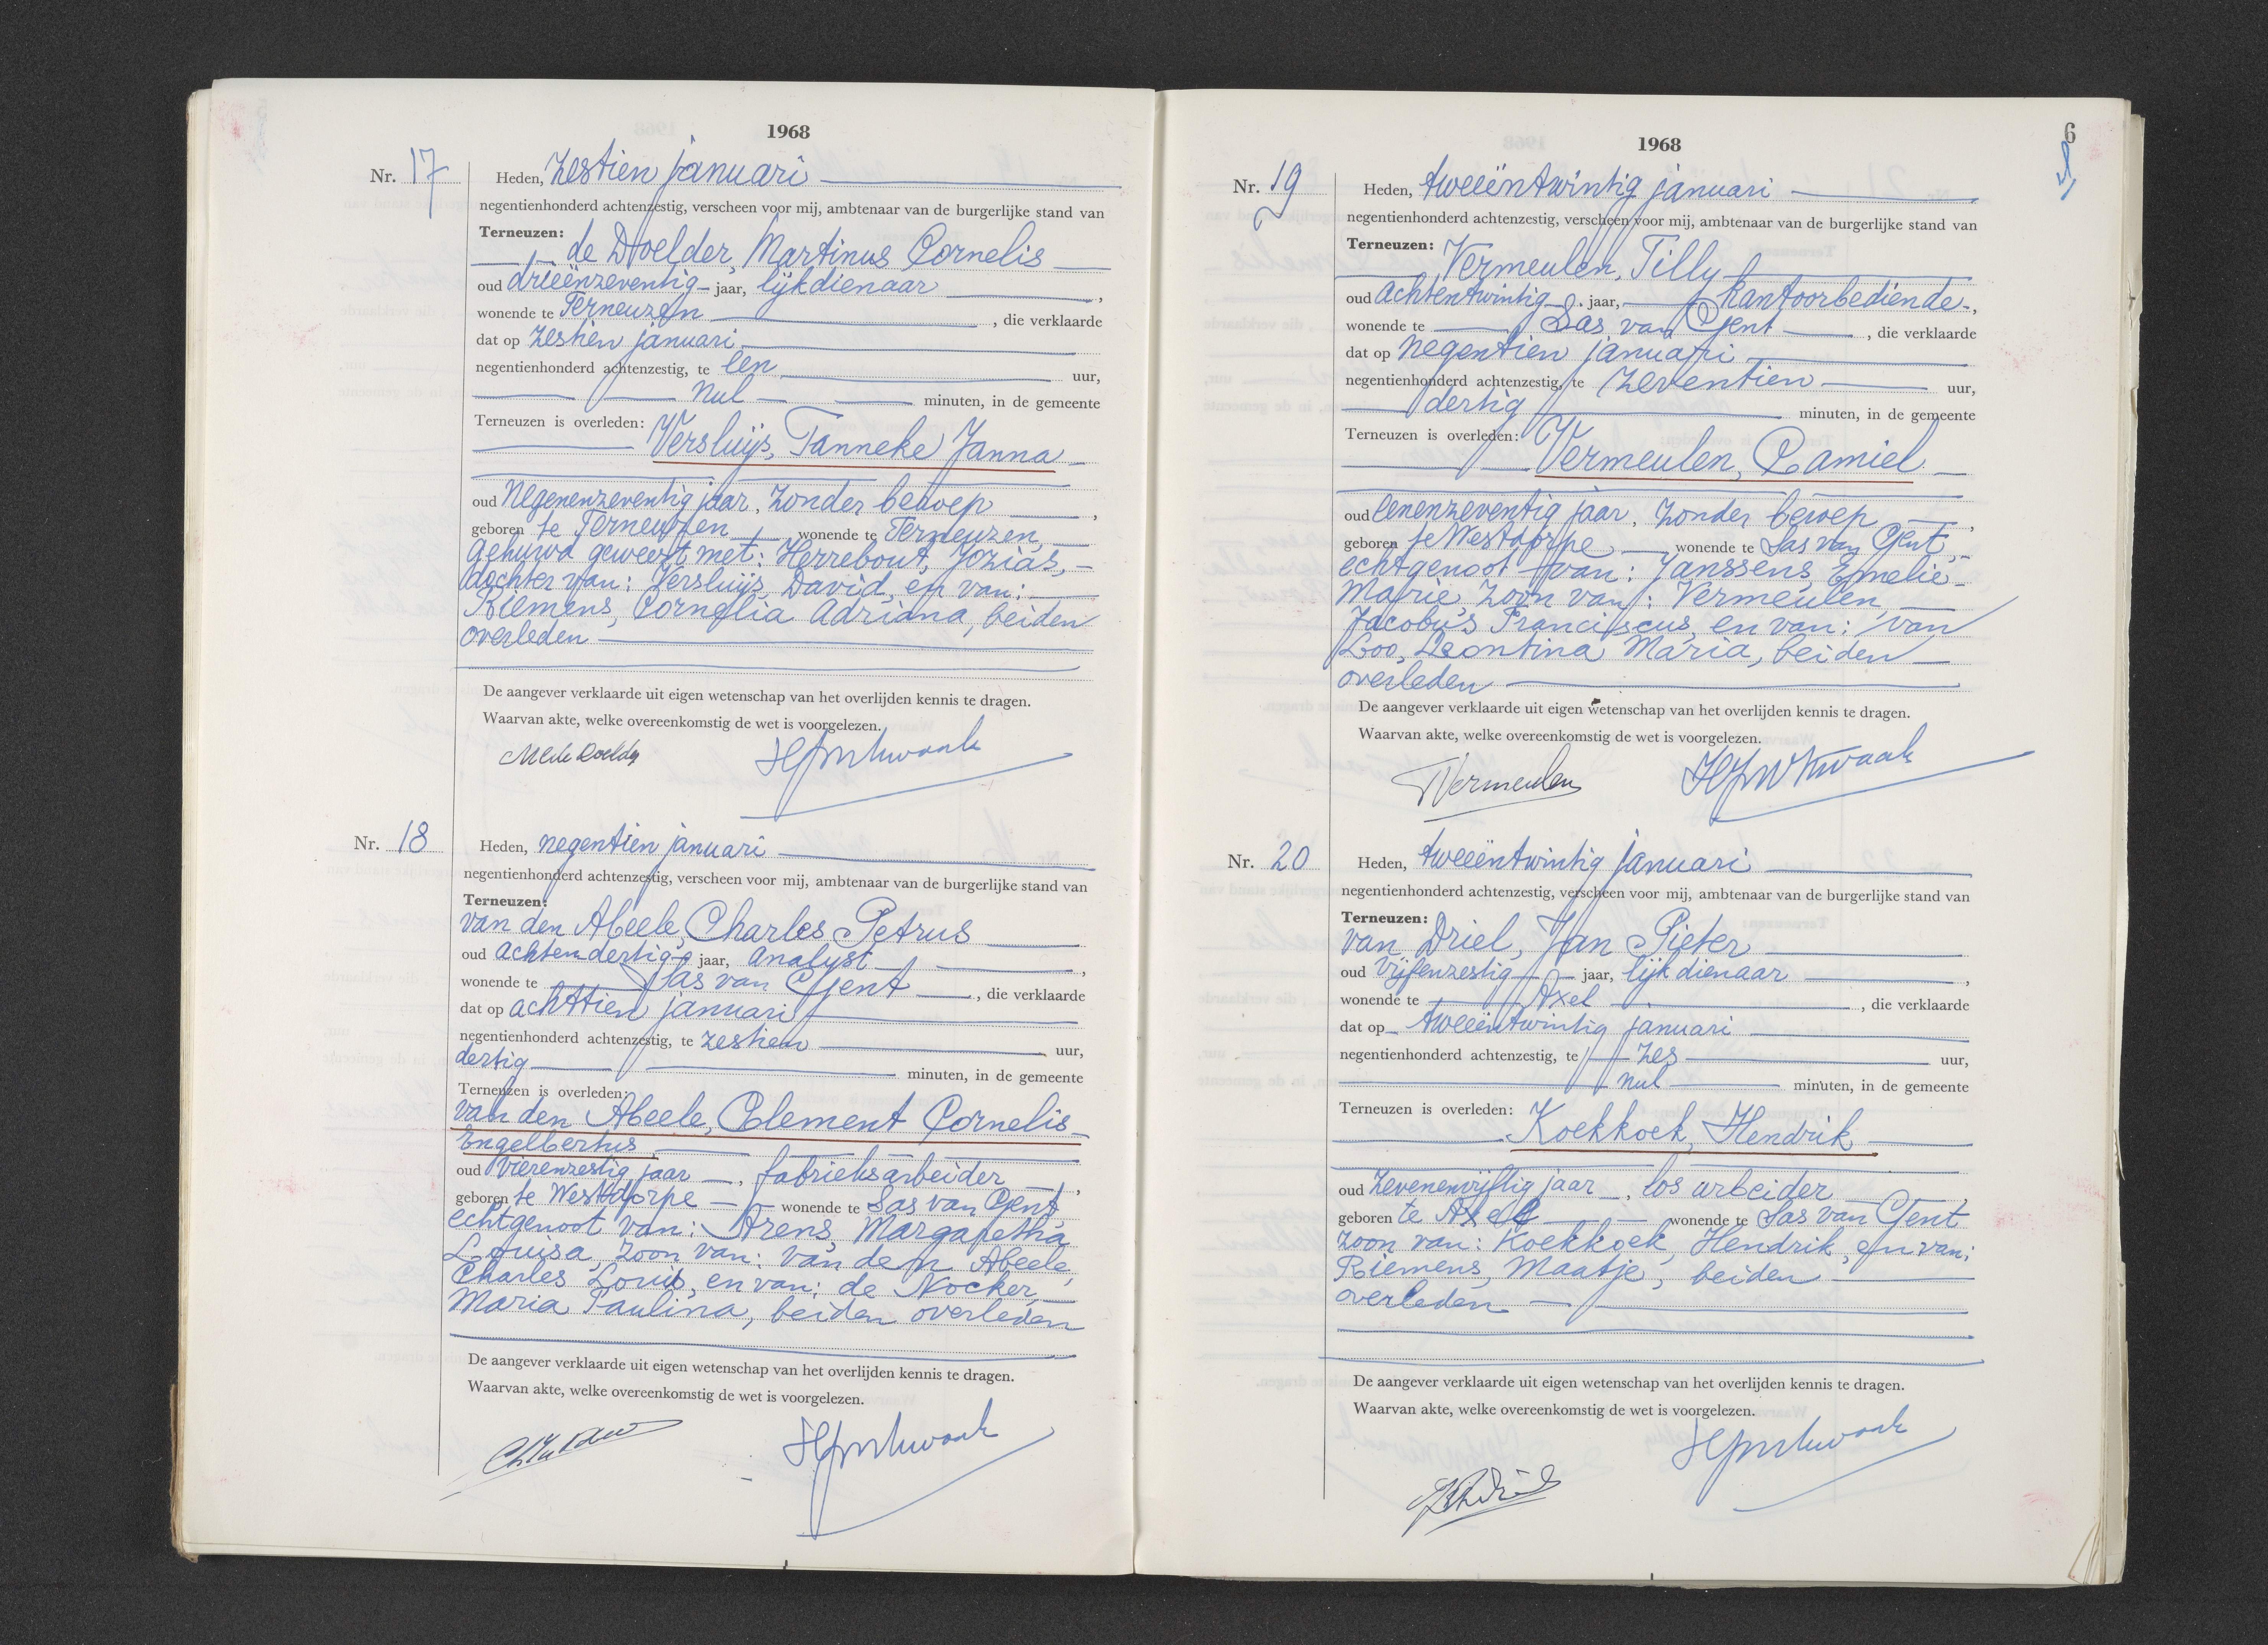 1968
Nr. 17
Heden, zestien januari
negentienhonderd achtenzestig, verscheen voor mij, ambtenaar van de burgerlijke stand van
Terneuzen:
de Doelder, Martinus Cornelis
oud drieënzeventig jaar, lijkdienaar,
wonende te Terneuzen, die verklaarde
dat op zestien januari
negentienhonderd achtenzestig, te een uur,
nul minuten, in de gemeente
Terneuzen is overleden:
Versluijs, Tanneke Janna
oud negenenzeventig jaar, zonder beroep,
geboren te Terneuzen wonende te Terneuzen,
gehuwd geweest met: Herrebout, Jozias,
dochter van: Versluijs, David, en van:
Riemens, Cornelia Adriana, beiden
overleden
De aangever verklaarde uit eigen wetenschap van het overlijden kennis te dragen.
Waarvan akte, welke overeenkomstig de wet is voorgelezen.
Nr. 18
Heden, negentien januari
negentienhonderd achtenzestig, verscheen voor mij, ambtenaar van de burgerlijke stand van
Terneuzen:
van den Abeele, Charles Petrus
oud achtendertig jaar, analyst,
wonende te Sas van Gent, die verklaarde
dat op achttien januari
negentienhonderd achtenzestig, te zestien uur,
dertig minuten, in de gemeente
Terneuzen is overleden:
van den Abeele, Clement Cornelis
Engelbertus
oud vierenzestig jaar, fabrieksarbeider,
geboren te Westdorpe wonende te Sas van Gent,
echtgenoot van: Arens, Margaretha
Louisa, zoon van: van den Abeele,
Charles Louis, en van: de Nocker,
Maria Paulina, beiden overleden
De aangever verklaarde uit eigen wetenschap van het overlijden kennis te dragen.
Waarvan akte, welke overeenkomstig de wet is voorgelezen.
6
1968
Nr. 19
Heden, tweeëntwintig januari
negentienhonderd achtenzestig, verscheen voor mij, ambtenaar van de burgerlijke stand van
Terneuzen:
Vermeulen, Tilly
oud achtentwintig jaar, kantoorbediende,
wonende te Sas van Gent, die verklaarde
dat op negentien januari
negentienhonderd achtenzestig, te zeventien uur,
dertig minuten, in de gemeente
Terneuzen is overleden:
Vermeulen, Camiel
oud eenenzeventig jaar, zonder beroep,
geboren te Westdorpe wonende te Sas van Gent,
echtgenoot van: Janssens, Emelie
Marie zoon van: Vermeulen,
Jacobus Franciscus, en van: van
Loo, Leontina Maria, beiden
overleden
De aangever verklaarde uit eigen wetenschap van het overlijden kennis te dragen.
Waarvan akte, welke overeenkomstig de wet is voorgelezen.
Vermeulen
Nr. 20
Heden, tweeëntwintig januari
negentienhonderd achtenzestig, verscheen voor mij, ambtenaar van de burgerlijke stand van
Terneuzen:
van Driel, Jan Pieter
oud vijfenzestig jaar, lijkdienaar,
wonende te Axel, die verklaarde
dat op tweeëntwintig januari
negentienhonderd achtenzestig, te zes uur,
nul minuten, in de gemeente
Terneuzen is overleden:
Koekkoek, Hendrik
oud zevenenvijftig jaar, los arbeider,
geboren te Axel wonende te Sas van Gent
zoon van: Koekkoek, Hendrik, en van:
Riemens, Maatje, beiden
overleden
De aangever verklaarde uit eigen wetenschap van het overlijden kennis te dragen.
Waarvan akte, welke overeenkomstig de wet is voorgelezen.